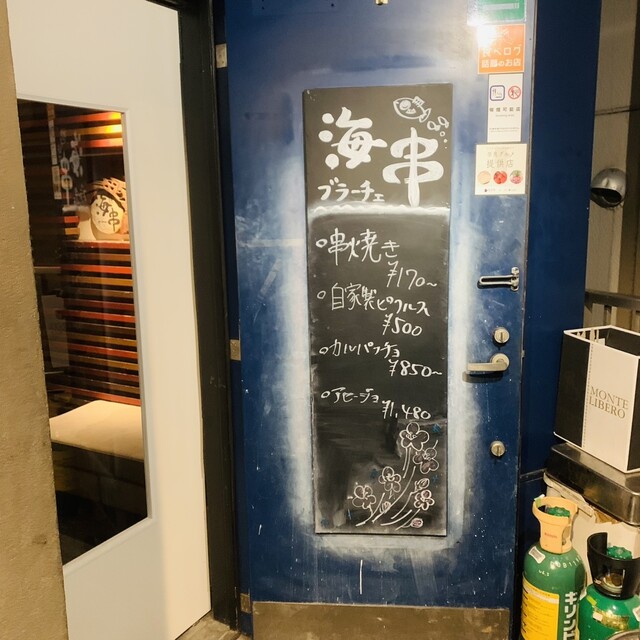 海串
ブラーチェ
串焼き
¥170~
自家製ピクルス
¥500
カルパッチョ
¥850~
アヒージョ
¥1,480
海串
食べログ
話題のお店
MONTE
LIBERO
キリン